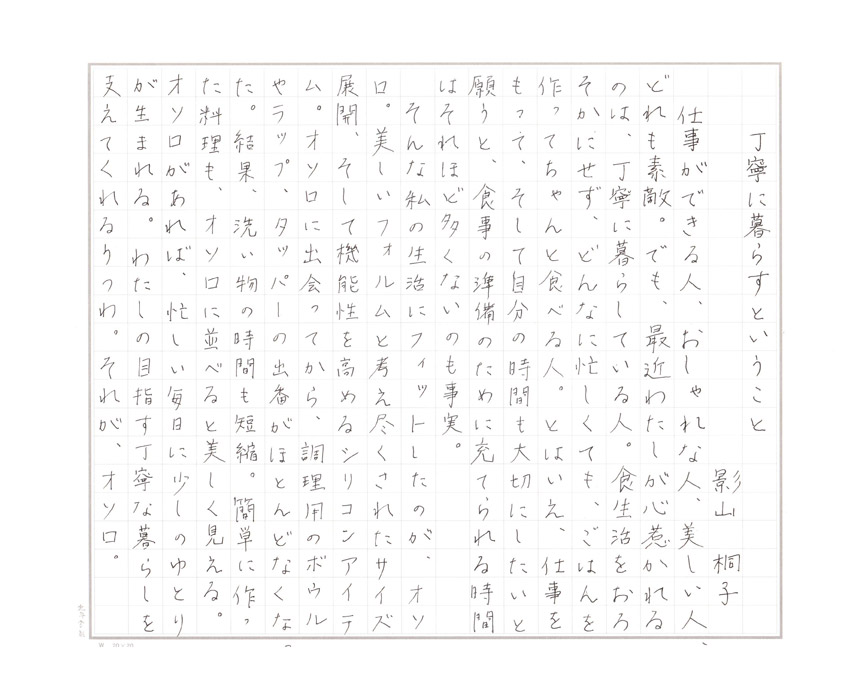 丁寧に暮らすということ
影山　桐子
仕事ができる人、おしゃれな人、美しい人、
どれも素敵。でも、最近わたしが心惹かれる
のは、丁寧に暮らしている人。食生活をおろ
そかにせず、どんなに忙しくても、ごはんを
作ってちゃんと食べる人。とはいえ、仕事を
もって、そして自分の時間も大切にしたいと
願うと、食事の準備のために充てられる時間
はそれほど多くないのも事実。
そんな私の生活にフィットしたのが、オソ
ロ。美しいフォルムと考え尽くされたサイズ
展開、そして機能性を高めるシリコンアイテ
ム。オソロに出会ってから、調理用のボウル
やラップ、タッパーの出番がほとんどなくな
た。結果、洗い物の時間も短縮。簡単に作っ
た料理も、オソロに並べると美しく見える。
オソロがあれば、忙しい毎日に少しのゆとり
が生まれる。わたしの目指す丁寧な暮らしを
支えてくれるうつわ。それが、オソロ。